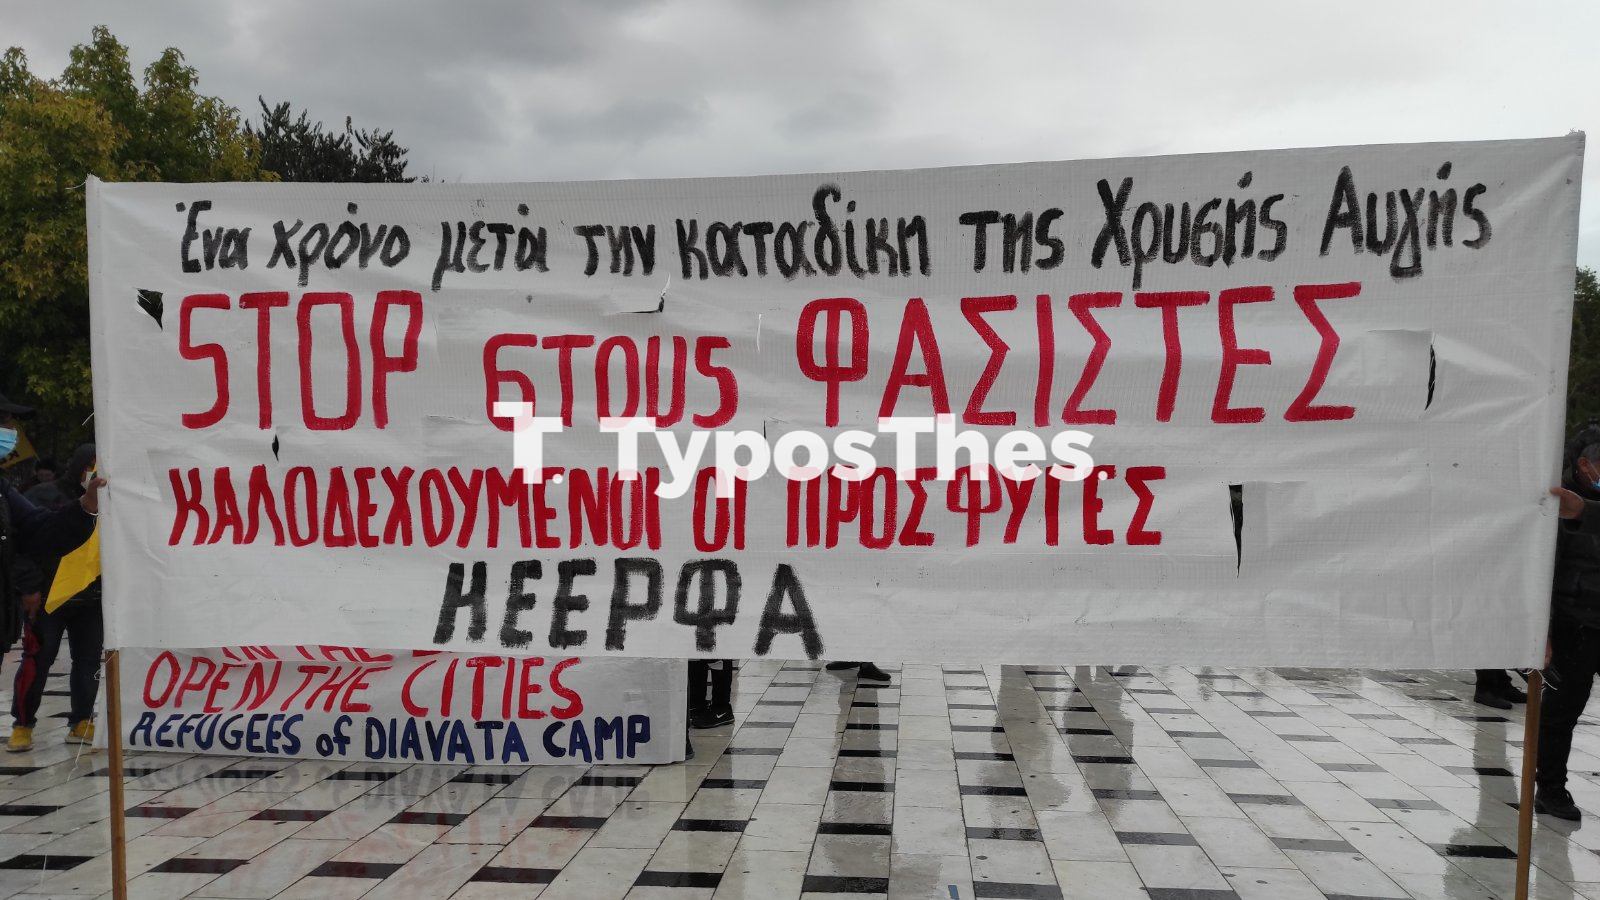 Ένα χρόνο μετά την καταδίκη της Χρυσής Αυγής
STOP στους ΦΑΣΙΣΤΕΣ
T. TyposThes.
ΚΑΛΟΔΕΧΟΥΜΕΝΟΙ ΟΙ ΠΡΟΣΦΥΓΕΣ
ΚΕΕΡΦΑ
IN THE
OPEN THE CITIES
REFUGEES of DIAVATA CAMP